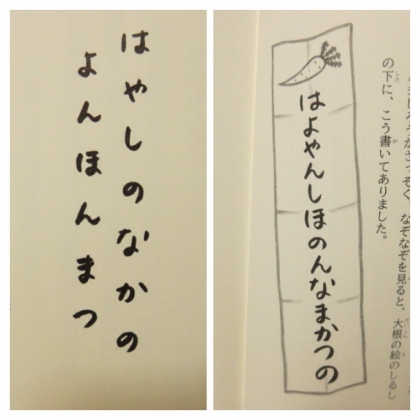 はやしのなかの
よんほんまつ
さっそく、なぞなぞを見ると、大根の絵のしるし
の下に、こう書いてありました。
はよやんしほのんなまかつの